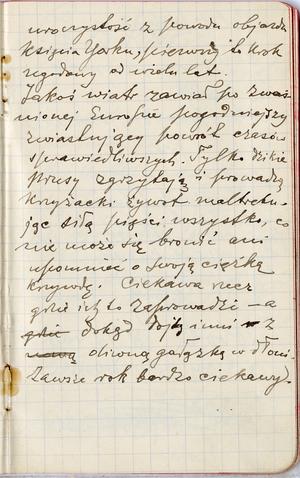 uroczystość z powodu objazdu
Księcia Yorku, pierwszy to krok
zgodawy od wielu lat.
Jakoś wiatr zawiał po zwaś-
nionej Europie pogodniejszy
zwiastujący powrót czasów
sprawiedliwszych. Tylko dzikie
Prusy zgrzytają i prowadzą
Krzyżacki żywot maltretu-
jąc siłą pięści wszystko, co
nie może się bronić ani
upomnieć o swoją ciężką
krzywdę. Ciekawa rzecz
gdzie ich to zaprowadzi – a
gdzie dokąd dojdą inni z
oliwną gałązką w dłoni.
Zawsze rok bardzo ciekawy.